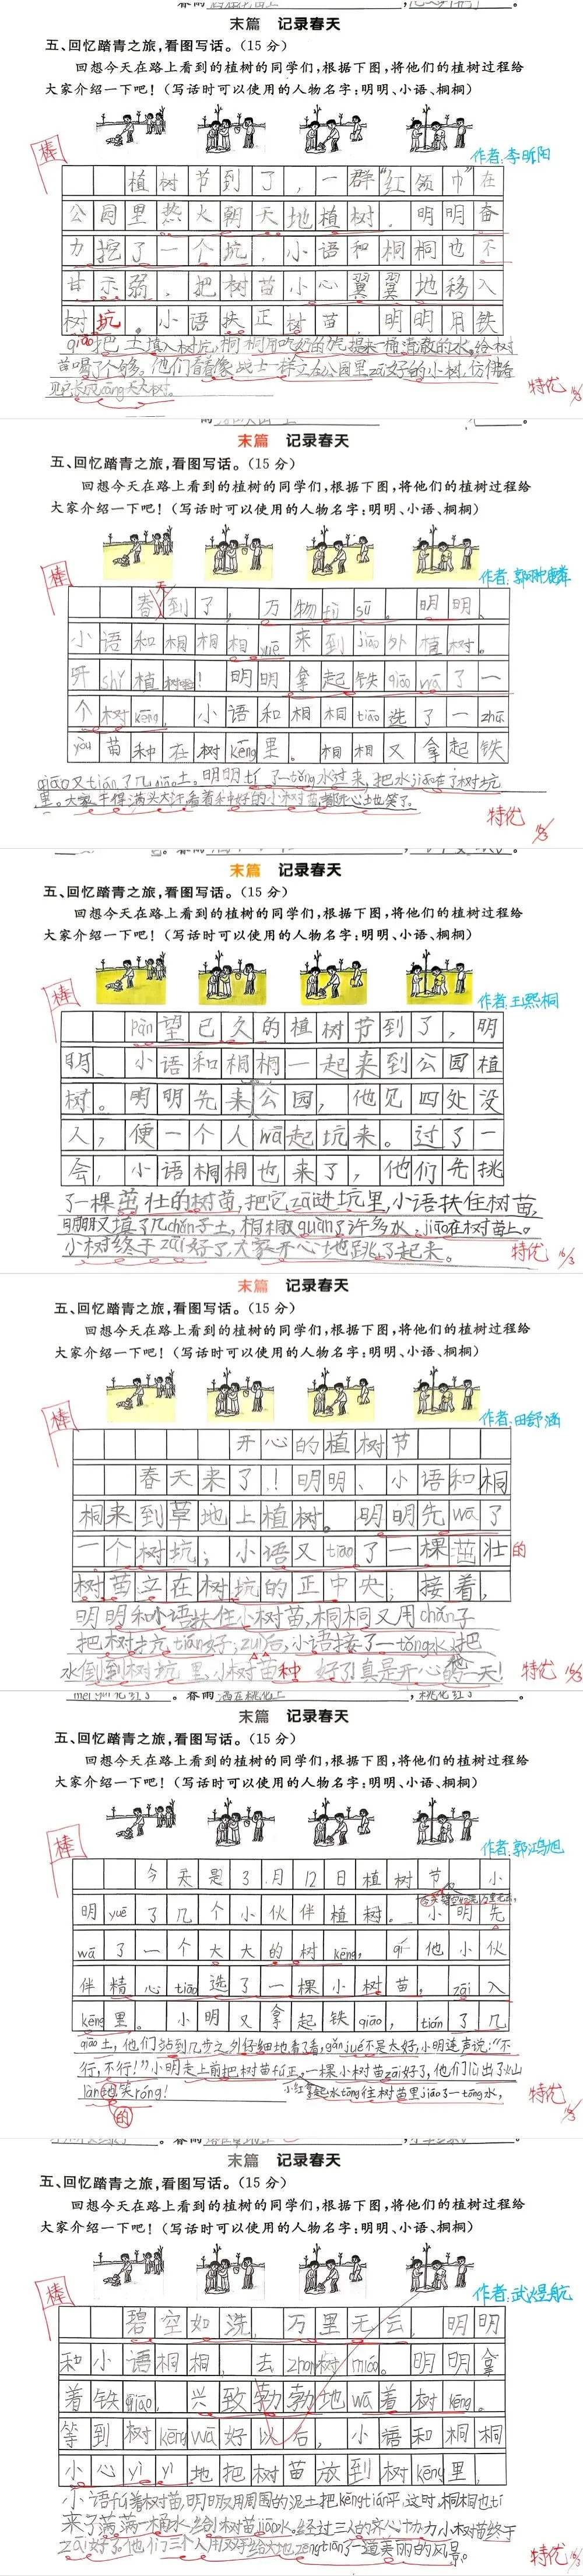 末篇 记录春天
五、回忆踏青之旅,看图写话。(15分)
回想今天在路上看到的植树的同学们,根据下图,将他们的植树过程给
大家介绍一下吧!(写话时可以使用的人物名字:明明、小语、桐桐)
作者:李昕阳
棒
植树节到了,一群“红领巾”在
公园里热火朝天地植树,明明奋
力挖了一个坑,小语和桐桐也不
甘示弱,把树苗小心翼翼地移入
树坑。小语扶正树苗,明明用铁
qiāo把土填入树坑,桐桐用吃奶的力提来一桶清澈的水,给树
苗喝了个够。他们看着像战士一样立在公园里zāi好的小树,仿佛看
见它长成cāng天大树。
特优 16/3
末篇 记录春天
五、回忆踏青之旅,看图写话。(15分)
回想今天在路上看到的植树的同学们,根据下图,将他们的植树过程给
大家介绍一下吧!(写话时可以使用的人物名字:明明、小语、桐桐)
棒
春天到了,万物fù sū。明明、
小语和桐桐相yuē来到jiāo外植树。
开shǐ植树啦!明明拿起铁qiāo wā了一
个树kēng,小语和桐桐tiāo选了一zhū
yòu苗种在树kēng里。桐桐又拿起铁
qiāo又tián了几qiāo土。明明tí了一tǒng水过来,把水jiāo在了树坑
里。大家手得满头大汗,看着种好的小树苗,都开心土也笑了。
特优 16/3
末篇 记录春天
五、回忆踏青之旅,看图写话。(15分)
回想今天在路上看到的植树的同学们,根据下图,将他们的植树过程给
大家介绍一下吧!(写话时可以使用的人物名字:明明、小语、桐桐)
作者:王熙桐
棒
pàn望已久的植树节到了,明
明、小语和桐桐一起来到公园植
树。明明先来公园,他见四处没
人,便一个人wā起坑来。过了一
会,小语桐桐也来了,他们先挑
了一棵茁壮的树苗,把它zāi进坑里,小语扶住树苗,
明明又填了几chǎn子土,桐桐取guàn了许多水,jiāo在树苗上。
小树终于zāi好了,大家开心地跳了起来。
特优 16/3
末篇 记录春天
五、回忆踏青之旅,看图写话。(15分)
回想今天在路上看到的植树的同学们,根据下图,将他们的植树过程给
大家介绍一下吧!(写话时可以使用的人物名字:明明、小语、桐桐)
作者:田舒涵
棒
开心的植树节
春天来了!明明、小语和桐
桐来到草地上植树。明明先wā了
一个树坑;小语又tiāo了一棵茁壮的
树苗立在树坑的正中央;接着,
明明和小语扶住小树苗,桐桐又用chǎn子
把树坑tián好;zuì后,小语接了一tǒng水把
水倒到树坑里,小树苗种好了!真是开心的一天!
特优 16/3
末篇 记录春天
五、回忆踏青之旅,看图写话。(15分)
回想今天在路上看到的植树的同学们,根据下图,将他们的植树过程给
大家介绍一下吧!(写话时可以使用的人物名字:明明、小语、桐桐)
作者:郭鸿旭
棒
今天是3月12日植树节,小
明yuē了几个小伙伴植树。小明先
wā了一个大大的树kēng,qí他小伙
伴精心tiāo选了一棵小树苗,zāi入
kēng里。小明又拿起铁qiāo,tián了几
qiāo土,他们站到几步之外仔细地看了看,gǎn jué不是太好,小明连声说:“不
行,不行!”小明走上前把树苗fú正,一棵小树苗zāi好了,他们lù出了càn
làn的笑róng!
小红拿起水tǒng往树苗里jiāo了一tǒng水,
特优 16/3
末篇 记录春天
五、回忆踏青之旅,看图写话。(15分)
回想今天在路上看到的植树的同学们,根据下图,将他们的植树过程给
大家介绍一下吧!(写话时可以使用的人物名字:明明、小语、桐桐)
作者:武煜航
棒
碧空如洗,万里无云,明明
和小语桐桐,去zhòng树miáo。明明拿
着铁qiāo,兴致勃勃地wā着树kēng。
等到树kēng wā好以后,小语和桐桐
小心yì yì地把树苗放到树kēng里,
小语fú着树苗,明明用周围的泥土把kēng tián平,这时,桐桐也tí
来了满满一桶水给小树苗jiāo水。经过三人的齐心力,小树苗终于
zāi好了。他们三个人用双手给大地zēng tiān了一道美丽的风景。
特优 16/3